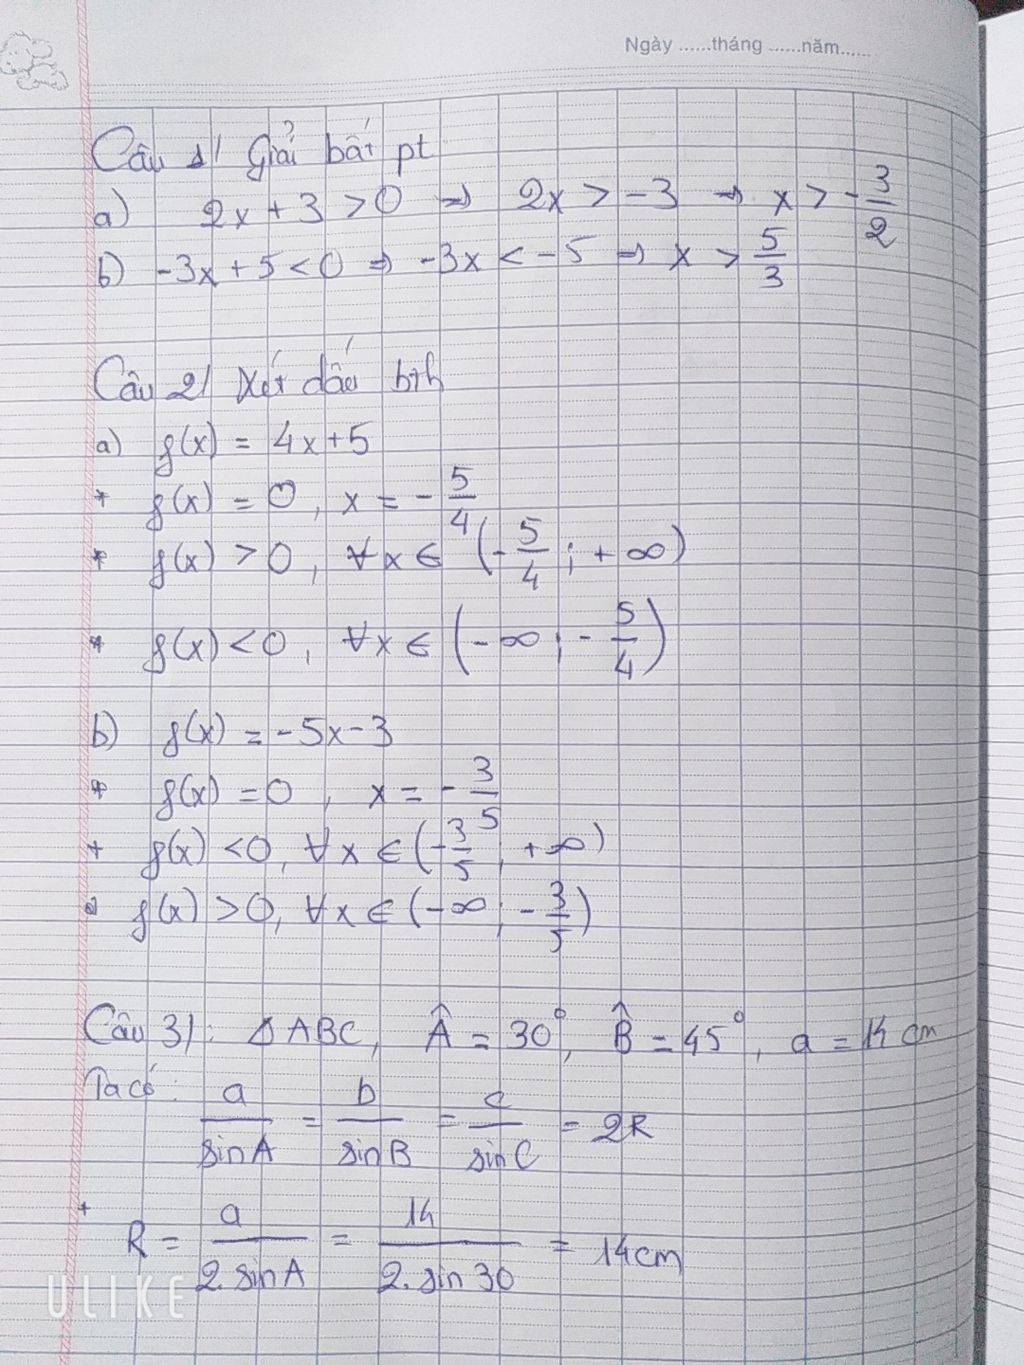 Ngày ......tháng ......năm......
Câu 1/ Giải bất pt
a) 2x + 3 > 0 ⇒ 2x > -3 ⇒ x > -3/2
b) -3x + 5 < 0 ⇒ -3x < -5 ⇒ x > 5/3
Câu 2/ Xét dấu bth
a) f(x) = 4x+5
* f(x) = 0, x = -5/4
* f(x) > 0, ∀x ∈ (-5/4; +∞)
* f(x) < 0, ∀x ∈ (-∞; -5/4)
b) f(x) = -5x-3
* f(x) = 0, x = -3/5
+ f(x) < 0, ∀x ∈ (-3/5; +∞)
* f(x) > 0, ∀x ∈ (-∞; -3/5)
Câu 3/: Δ ABC, Â = 30°, B̂ = 45°, a = 14 cm
Ta có: a/sinA = b/sinB = c/sinC = 2R
+ R = a/2.sinA = 14/2.sin30 = 14cm
ULIKE